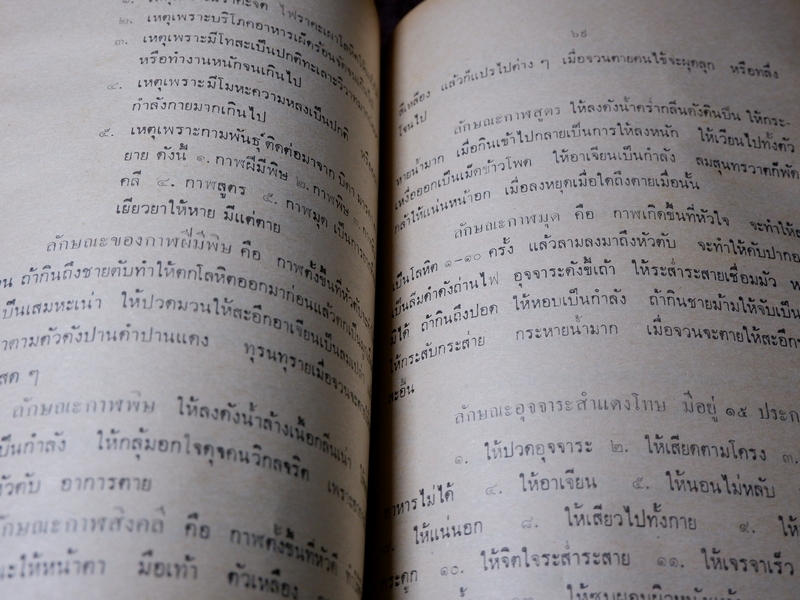 ๒. เหตุเพราะบริโภคอาหารเผ็ดร้อนจัดจนเกินไป
๓. เหตุเพราะมีโทสะเป็นปกติทะเลาะวิวาท
หรือทำงานหนักจนเกินไป
๔. เหตุเพราะมีโมหะความหลงเป็นปกติ หรือ
กำลังกายมากเกินไป
๕. เหตุเพราะกามพันธุ์ ติดต่อมาจาก บิดา มารดา
ยาย ดังนี้ ๑. กาฬผีมีพิษ ๒. กาฬพิษ ๓. กาฬ
คลี ๔. กาฬสูตร ๕. กาฬมุด เป็นการ
เยียวยาให้หาย มีแต่ตาย
ลักษณะของกาฬผีมีพิษ คือ กาฬตั้งขึ้นที่หัวตับ
ถ้ากินถึงชายตับทำให้ตกโลหิตออกมาก่อนแล้วตกเป็น
เป็นเสมหะเน่า ให้ปวดมวนให้สะอึกอาเจียนเป็นลมเปล่า
ตามตัวดังปานดำปานแดง ทุรนทุรายเมื่อจวนจะ
สด ๆ
ลักษณะกาฬพิษ ให้ลงดังน้ำล้างเนื้อกลิ่นเน่า
เป็นกำลัง ให้กลุ้มอกใจดุจคนวิกลจริต เพราะ
หัวตับ อาการตาย
ลักษณะกาฬสิงคลี คือ กาฬตั้งขึ้นที่หัวดี ทำ
ให้หน้าตา มือเท้า ตัวเหลือง
๖๑
สีเหลือง แล้วก็แปรไปต่าง ๆ เมื่อจวนตายคนไข้จะผุดลุก หรือทลึ่ง
โจนไป
ลักษณะกาฬสูตร ให้ลงดังน้ำคร่ำกลิ่นดังดินปืน ให้กระ-
หายน้ำมาก เมื่อกินเข้าไปกลายเป็นการให้ลงหนัก ให้เวียนไปทั้งตัว
เหงื่อออกเป็นเม็ดข้าวโพด ให้อาเจียนเป็นกำลัง ลมสุนทรวาตก็พัด
กล้าให้แน่นหน้าอก เมื่อลงหยุดเมื่อใดถึงตายเมื่อนั้น
ลักษณะกาฬมุด คือ กาฬเกิดขึ้นที่หัวใจ จะทำให้
เป็นโลหิต ๑-๑๐ ครั้ง แล้วลามลงมาถึงหัวตับ จะทำให้คับปาก
เป็นลิ่มดำดังถ่านไฟ อุจจาระดังขี้เถ้า ให้ระส่ำระสายเชื่อมมัว
มิได้ ถ้ากินถึงปอด ให้หอบเป็นกำลัง ถ้ากินชายม้ามให้จับเป็น
ให้กระสับกระส่าย กระหายน้ำมาก เมื่อจวนจะตายให้สะอึก
สะอื้น
ลักษณะอุจจาระสำแดงโทษ มีอยู่ ๑๕ ประกา
๑. ให้ปวดอุจจาระ ๒. ให้เสียดตามโครง ๓.
อาหารไม่ได้ ๔. ให้อาเจียน ๕. ให้นอนไม่หลับ
ให้แน่นอก ๘. ให้เสียวไปทั้งกาย ๙. ให้
กระดูก ๑๐. ให้จิตใจระส่ำระสาย ๑๑. ให้เจรจาเร็ว
ให้ซูบผอมผิวหนังแห้ง